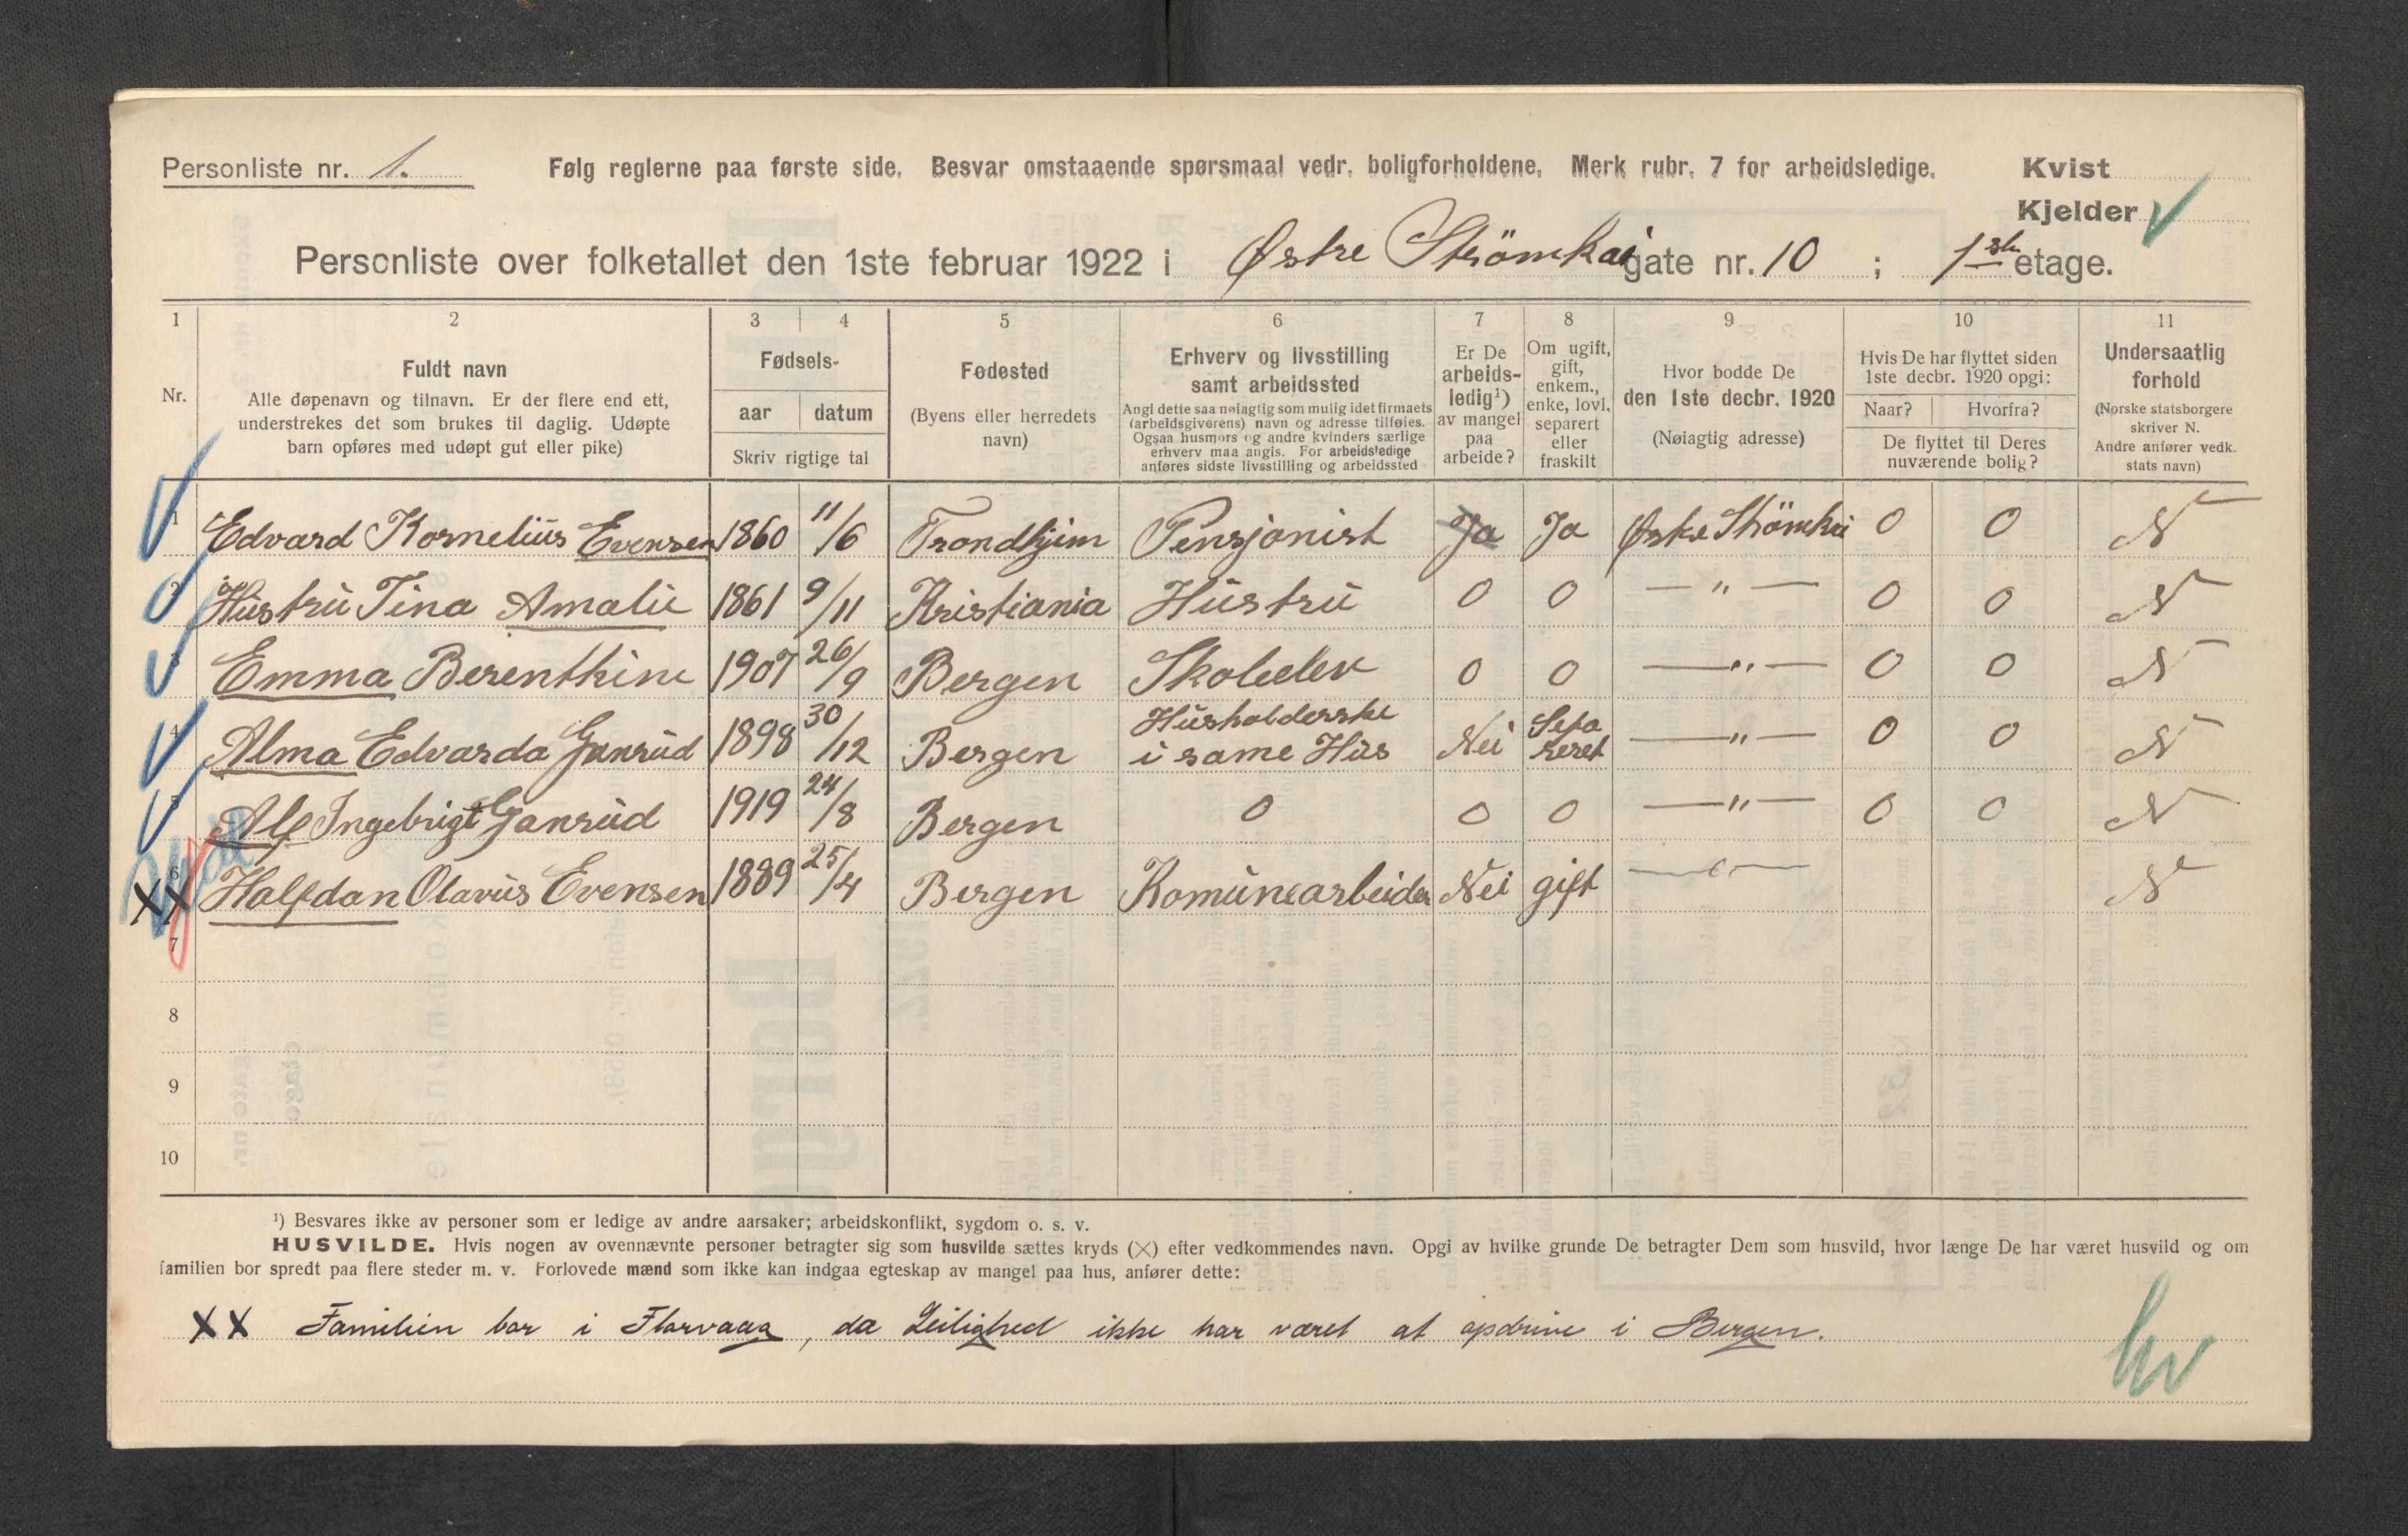 Personliste nr. 1. Følg reglerne paa første side. Besvar omstaaende spørsmaal vedr. boligforholdene. Merk rubr. 7 for arbeidsledige. Kvist
Kjelder
Personliste over folketallet den 1ste februar 1922 i Østre Strömkai gate nr. 10 ; 1ste etage.
1 2 3 4 5 6 7 8 9 10 11
Nr.
Fuldt navn
Alle døpenavn og tilnavn. Er der flere end ett,
understrekes det som brukes til daglig. Udøpte
barn opføres med udøpt gut eller pike)
Fødsels-
aar datum
Skriv rigtige tal
Fødested
(Byens eller herredets
navn)
Erhverv og livsstilling
samt arbeidssted
Angi dette saa nøiagtig som mulig idet firmaets
(arbeidsgiverens) navn og adresse tilføies.
Ogsaa husmors og andre kvinders særlige
erhverv maa angis. For arbeidsledige
anføres sidste livsstilling og arbeidssted
Er De
arbeids-
ledig¹)
av mangel
paa
arbeide?
Om ugift,
gift,
enkem.,
enke, lovl.
separert
eller
fraskilt
Hvor bodde De
den 1ste decbr. 1920
(Nøiagtig adresse)
Hvis De har flyttet siden
1ste decbr. 1920 opgi:
Naar? Hvorfra?
De flyttet til Deres
nuværende bolig?
Undersaatlig
forhold
(Norske statsborgere
skriver N.
Andre anfører vedk.
stats navn)
1 Edvard Kornelius Evensen 1860 11/6 Trondhjem Pensjonist Ja Ja Østre Strömkai 0 0 N
2 Hustru Tina Amalie 1861 9/11 Kristiania Hustru 0 0 — " — 0 0 N
3 Emma Berenthine 1907 26/9 Bergen Skoleelev 0 0 — " — 0 0 N
4 Alma Edvarda Gansrud 1898 30/12 Bergen Husholderske i same Hus Nei Separeret — " — 0 0 N
5 Alf Ingebrigt Gansrud 1919 24/8 Bergen 0 0 0 — " — 0 0 N
XX 6 Halfdan Olavus Evensen 1889 25/4 Bergen Komunearbeider Nei gift — " — N
7
8
9
10
¹) Besvares ikke av personer som er ledige av andre aarsaker; arbeidskonflikt, sygdom o. s. v.
HUSVILDE. Hvis nogen av ovennævnte personer betragter sig som husvilde sættes kryds (×) efter vedkommendes navn. Opgi av hvilke grunde De betragter Dem som husvild, hvor længe De har været husvild og om
familien bor spredt paa flere steder m. v. Forlovede mænd som ikke kan indgaa egteskap av mangel paa hus, anfører dette:
XX Familien bor i Florvaag, da Leilighed ikke har været at opdrive i Bergen.
hv